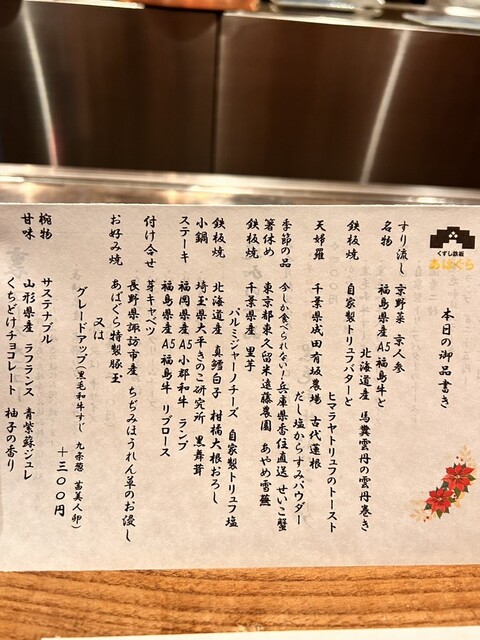 くずし鉄板
あばぐら
本日の御品書き
すり流し 京野菜 京人参
名物 福島県産A5福島牛と
北海道産 馬糞雲丹の雲丹巻き
鉄板焼 自家製トリュフバターと
ヒマラヤトリュフのトースト
天婦羅 千葉県成田有坂農場 古代蓮根
だし塩からすみパウダー
季節の品 今しか食べられない!兵庫県香住直送 せいこ蟹
箸休め 東京都東久留米遠藤農園 あやめ雪蕪
鉄板焼 千葉県産 里芋
パルミジャーノチーズ 自家製トリュフ塩
鉄板焼 北海道産 真鱈白子 柑橘大根おろし
小鍋 埼玉県大平きのこ研究所 黒舞茸
ステーキ 福岡県産A5小郡和牛 ランプ
福島県産A5福島牛 リブロース
付け合せ 芽キャベツ
長野県諏訪市産 ちぢみほうれん草のお浸し
お好み焼 あばぐら特製豚玉
又は
グレードアップ(黒毛和牛すじ 九条葱 茜美人卵)
+三〇〇円
椀物 サステナブル
甘味 山形県産 ラフランス 青紫蘇ジュレ
くちどけチョコレート 柚子の香り